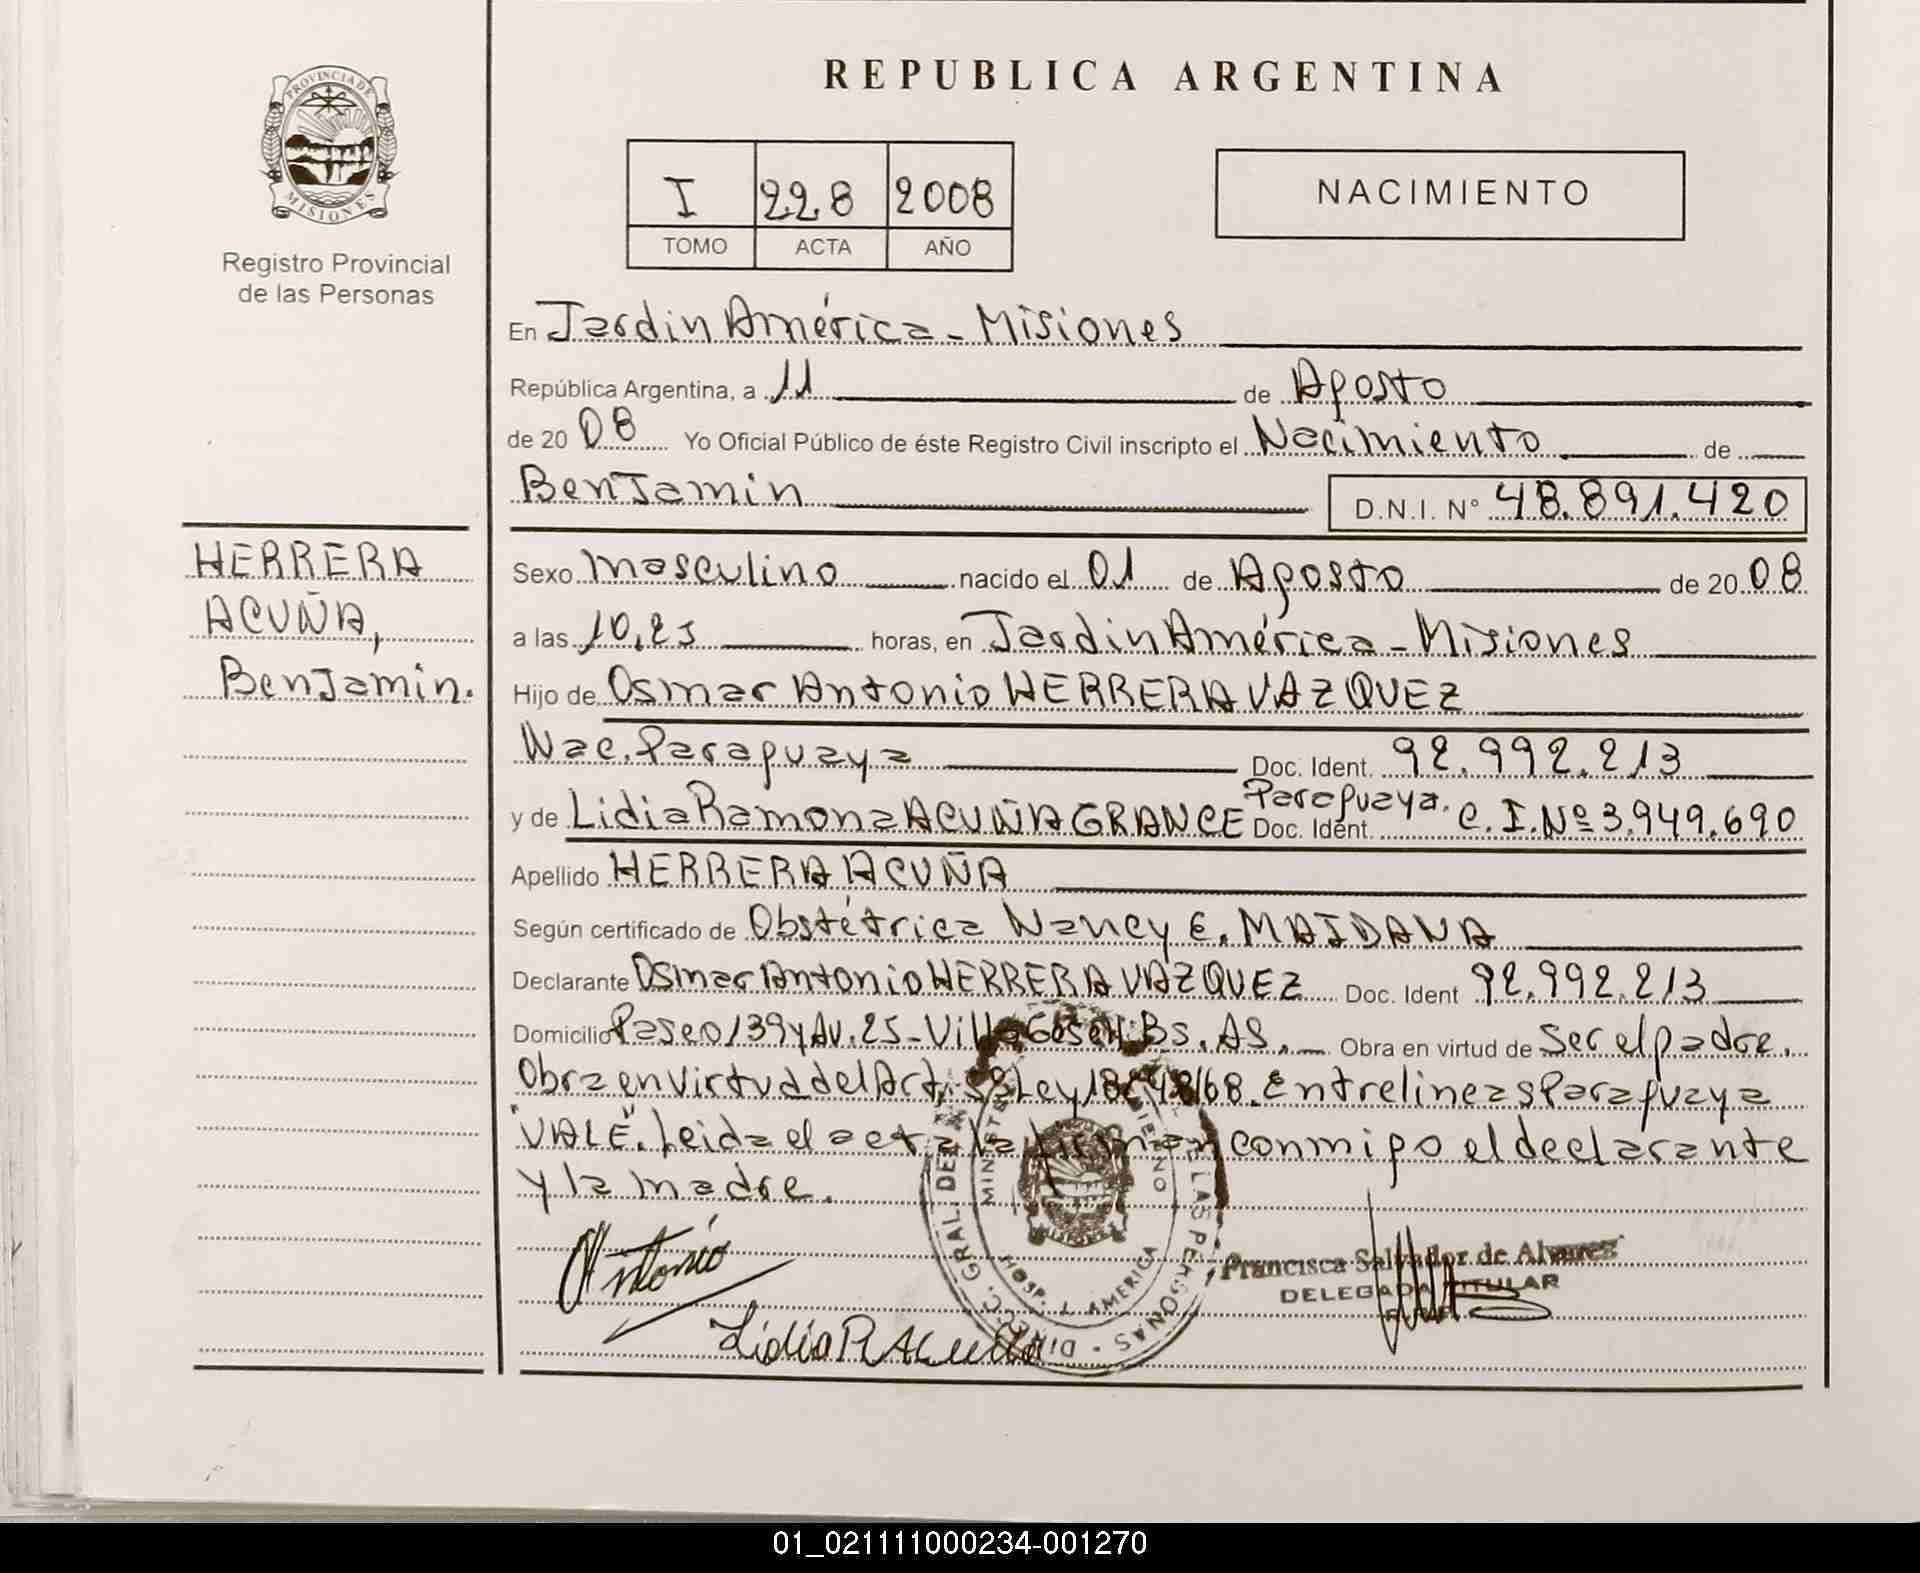 REPUBLICA ARGENTINA
PROVINCIA DE
MISIONES
Registro Provincial
de las Personas
I 228 2008
TOMO ACTA AÑO
NACIMIENTO
En Jardin América - Misiones
República Argentina, a 11 de Agosto
de 20 08 Yo Oficial Público de éste Registro Civil inscripto el Nacimiento de
Benjamin D.N.I. Nº 48.891.420
HERRERA
ACUÑA,
Benjamin.
Sexo masculino nacido el 01 de Agosto de 20 08
a las 10,25 horas, en Jardin América - Misiones
Hijo de Osmar Antonio HERRERA VAZQUEZ
Nac. Paraguaya Doc. Ident. 92.992.213
Paraguaya.
y de Lidia Ramona ACUÑA GRANCE Doc. Ident. C.I.Nº 3.949.690
Apellido HERRERA ACUÑA
Según certificado de Obstétrica Nancy E. MAIDANA
Declarante Osmar Antonio HERRERA VAZQUEZ Doc. Ident 92.992.213
Domicilio Paseo 139 y Av. 25 - Villa Gesell: Bs. AS. Obra en virtud de Ser el padre.
Obra en virtud del Art. Ley 18. /68. Entrelineas Paraguaya
"VALE". Leida el acta la firman conmigo el declarante
y la madre.
DIRECC. GRAL. DE LAS PERSONAS
HOSP. AMERICA
Antonio
Lidia R Acuña
Francisca Salvador de Alvarez
DELEGADA TITULAR
01_021111000234-001270